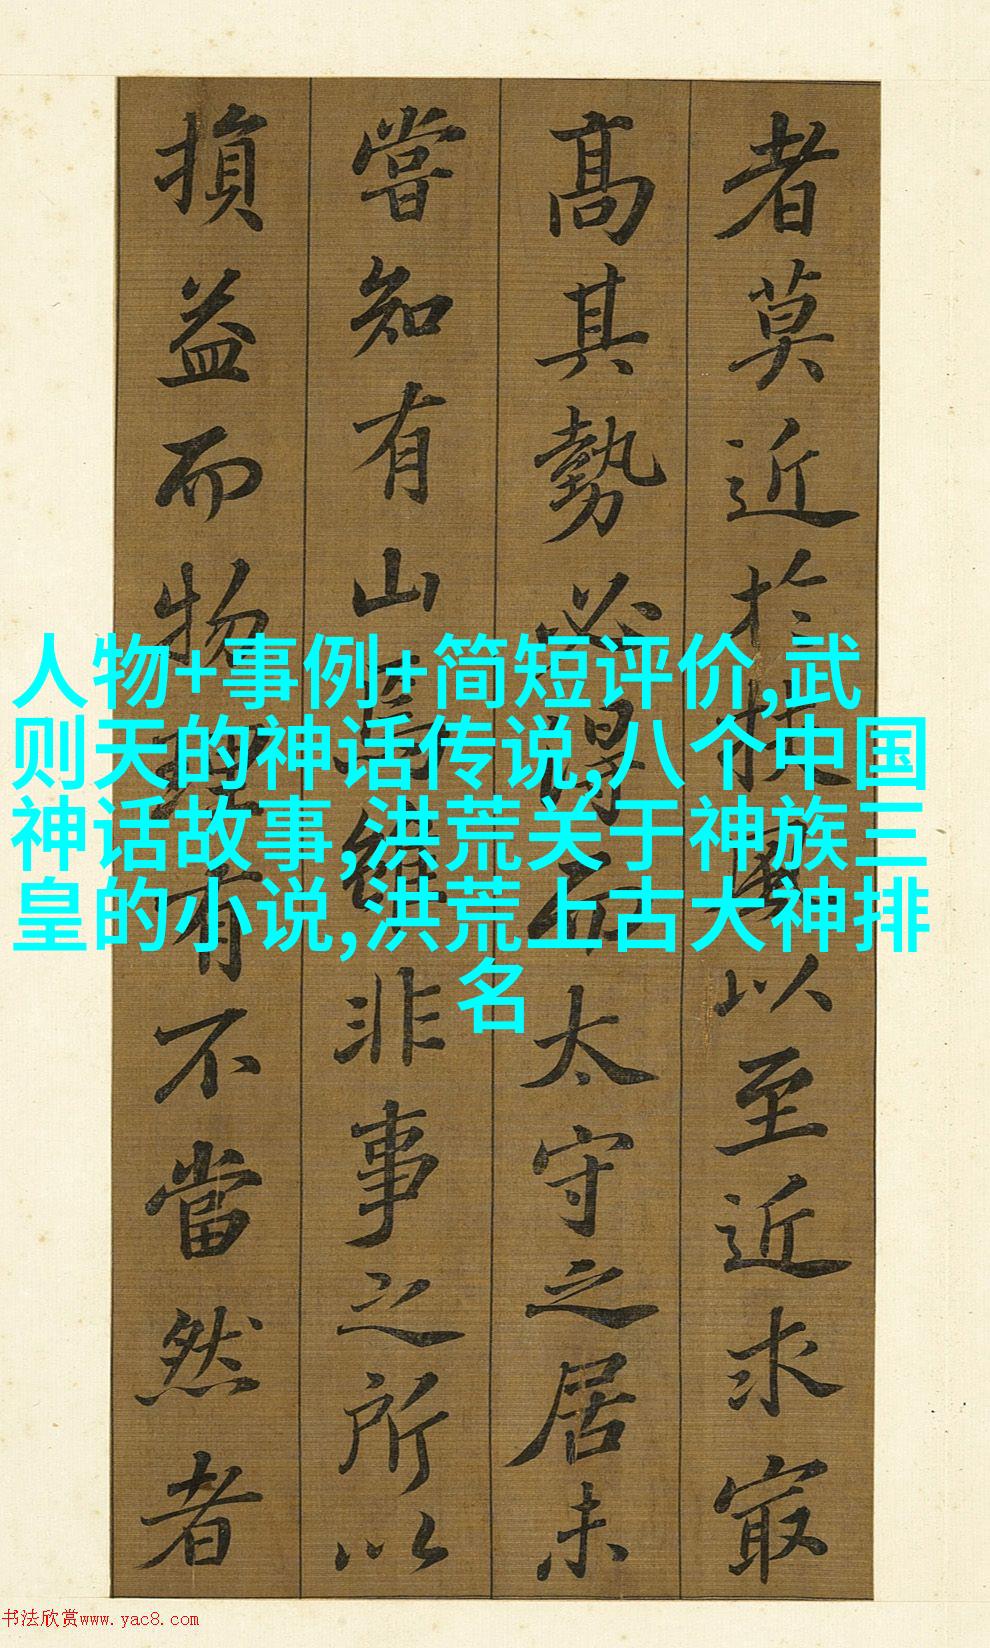 者莫近於扶風以至近求冣
高其勢必得而太守之居未
嘗知有山焉雖非事之所以
損益而物理有不當然者
人物+事例+简短评价,武
则天的神话传说,八个中国
神话故事,洪荒关于神族三
皇的小说,洪荒上古大神排
名
书法欣赏www.yac8.com